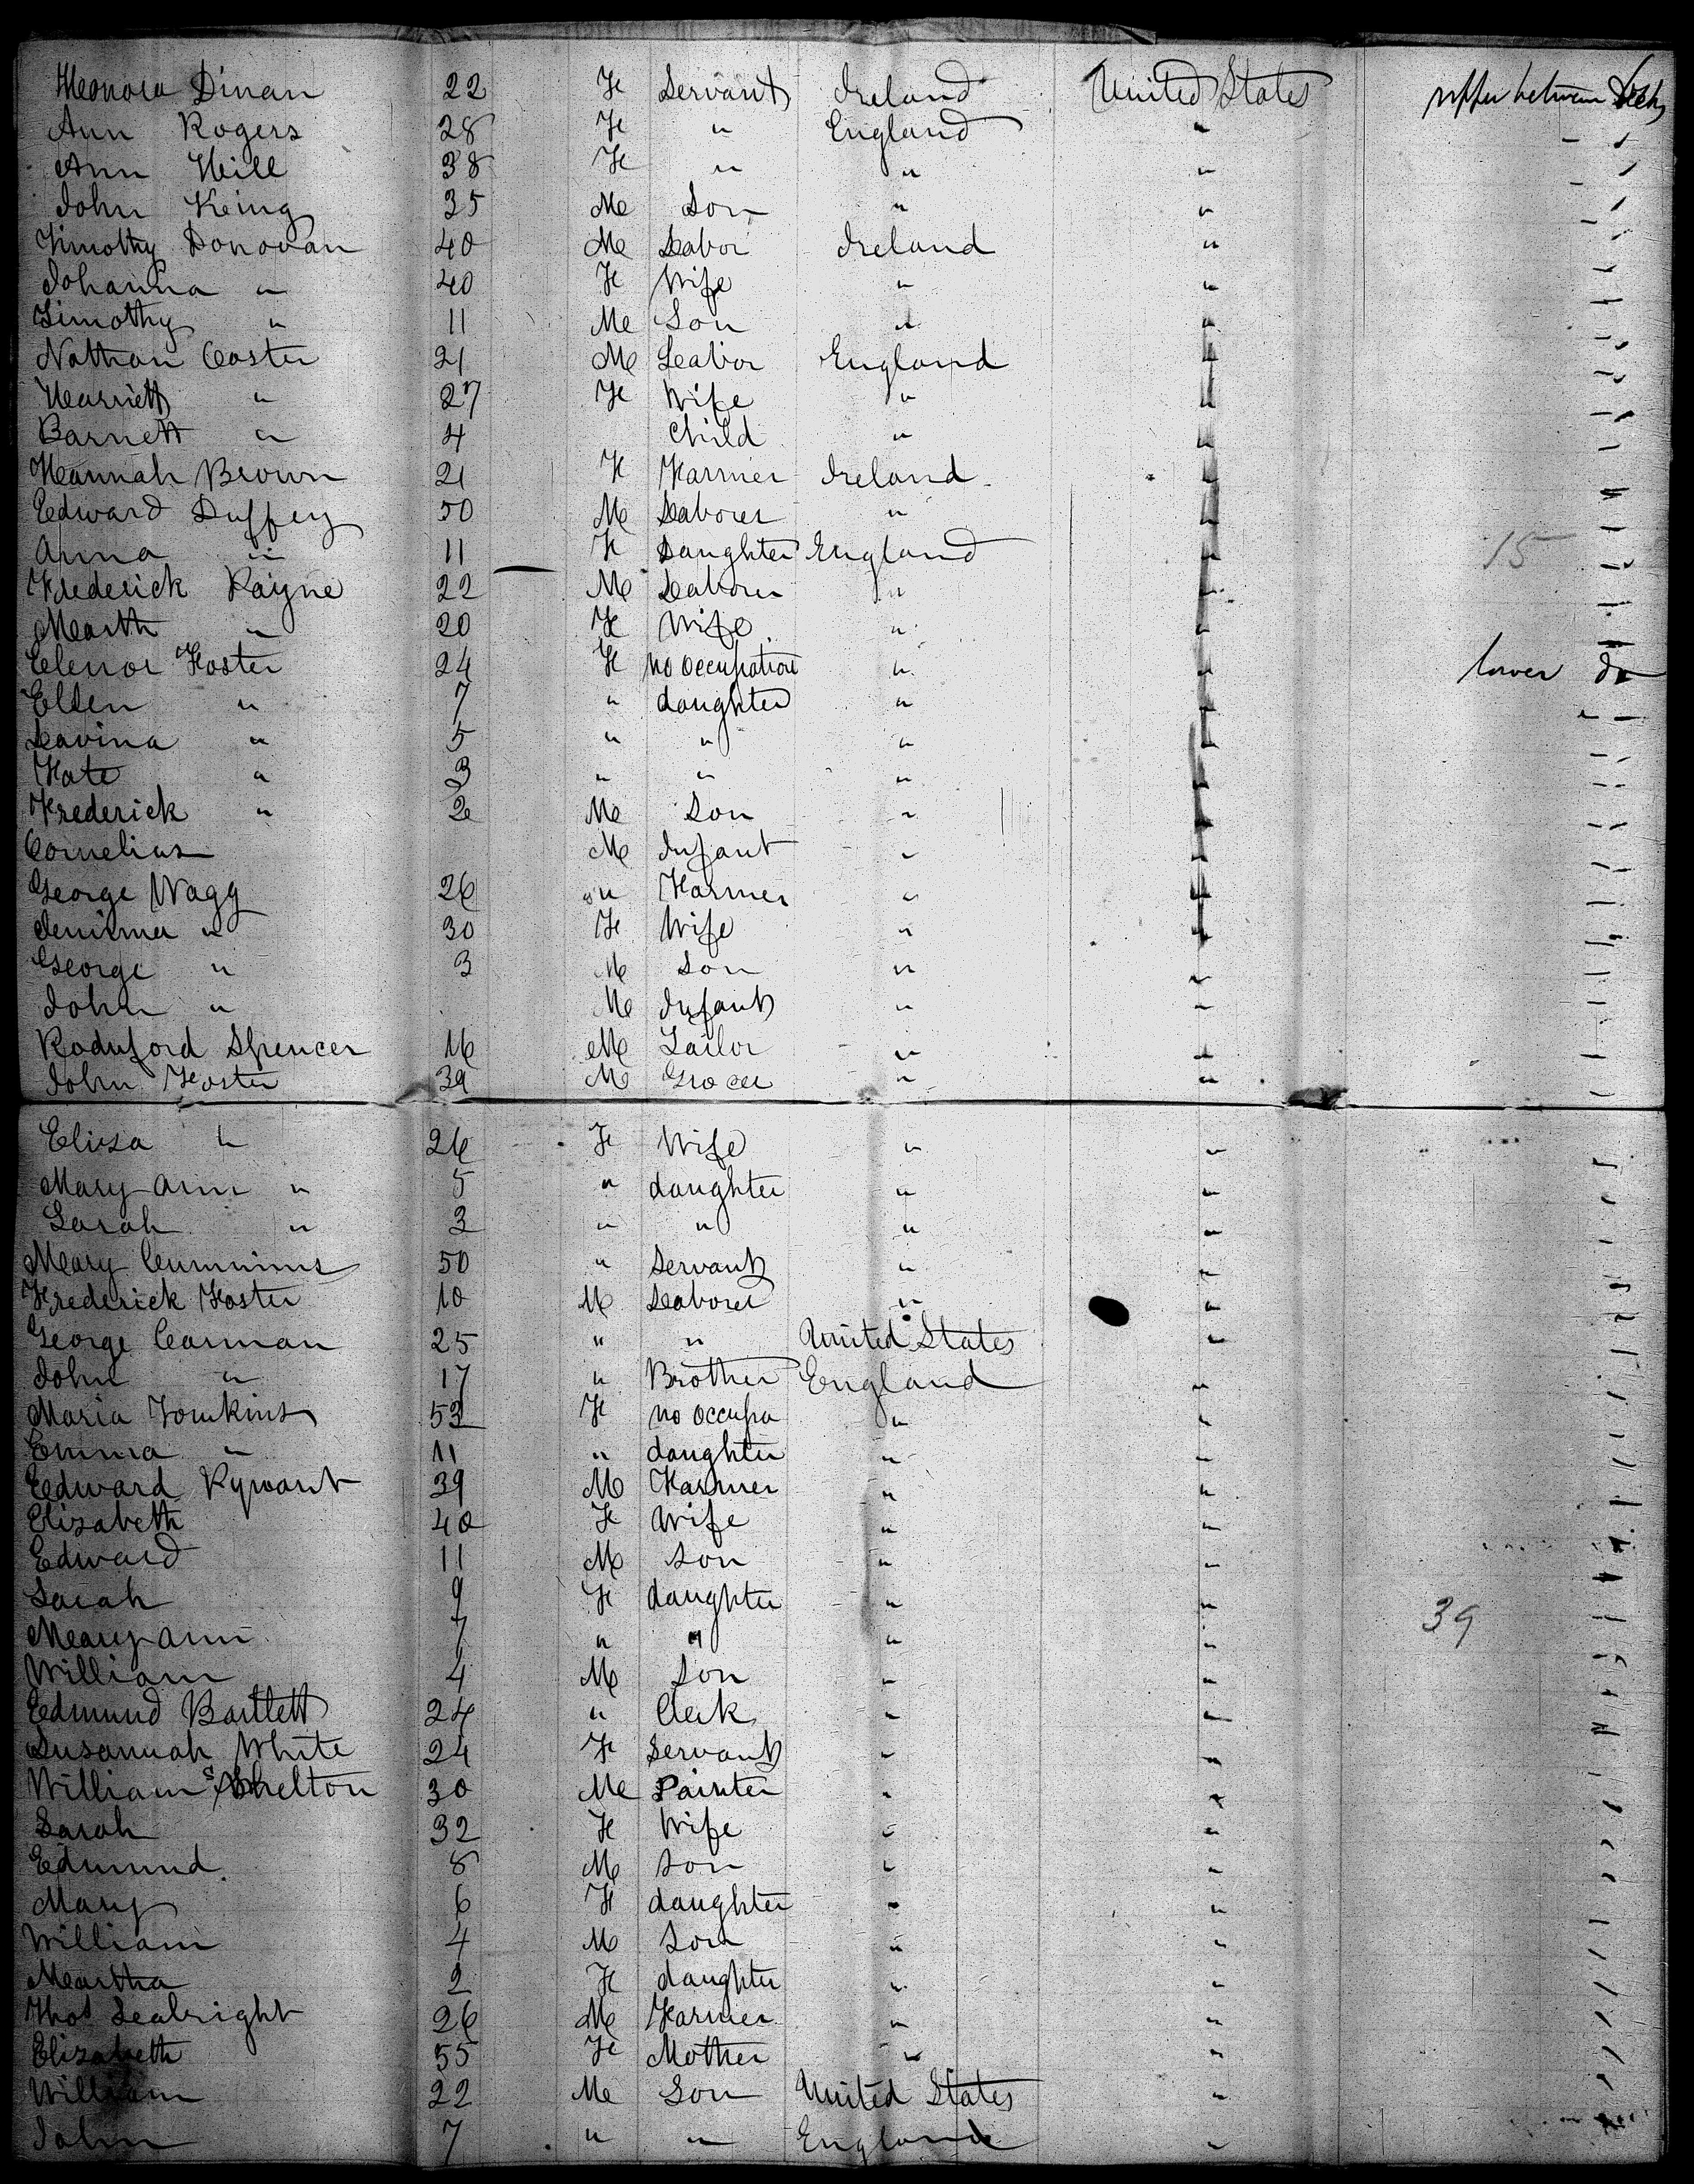 Honora Dinan 22 F Servant Ireland United States upper between Decks
Ann Rogers 28 F " England "
Ann Hill 38 F " " "
John King 35 M Son " "
Timothy Donovan 40 M Labor Ireland "
Johanna " 40 F Wife " "
Timothy " 11 M Son " "
Nathan Coster 21 M Labor England "
Harriett " 27 F Wife " "
Barnett " 4 Child " "
Hannah Brown 21 F Farmer Ireland "
Edward Duffey 50 M Laborer " "
Anna " 11 F Daughter England " 15
Frederick Payne 22 M Laborer " "
Marth " 20 F Wife " "
Elenor Foster 24 F no occupation " " lower do
Ellen " 7 " daughter " "
Lavina " 5 " " " "
Kate " 3 " " " "
Frederick " 2 M Son " "
Cornelius M Infant " "
George Wagg 26 " Farmer " "
Jemima " 30 F Wife " "
George " 3 M Son " "
John " M Infant " "
Spencer 16 M Tailor " "
John Foster 39 M Grocer " "
Eliza " 26 F Wife " "
Mary Ann " 5 " daughter " "
Sarah " 3 " " " "
Mary Cummins 50 " Servant " "
Frederick Foster 10 M Laborer " "
George Carman 25 " " United States "
John " 17 " Brother England "
Maria Tomkins 53 F no occupa " "
Emma " 11 " daughter " "
Edward 39 M Farmer " "
Elizabeth 40 F Wife " "
Edward 11 M Son " "
Sarah 9 F daughter " "
Mary ann 7 " " " " 39
William 4 M Son " "
Edmund Bartlett 24 " Clerk " "
Susannah White 24 F Servant " "
William Shelton 30 M Painter " "
Sarah 32 F Wife " "
Edmund 8 M Son " "
Mary 6 F daughter " "
William 4 M Son " "
Martha 2 F daughter " "
Thos Sealright 26 M Farmer " "
Elizabeth 55 F Mother " "
William 22 M Son United States "
John 7 " " England "